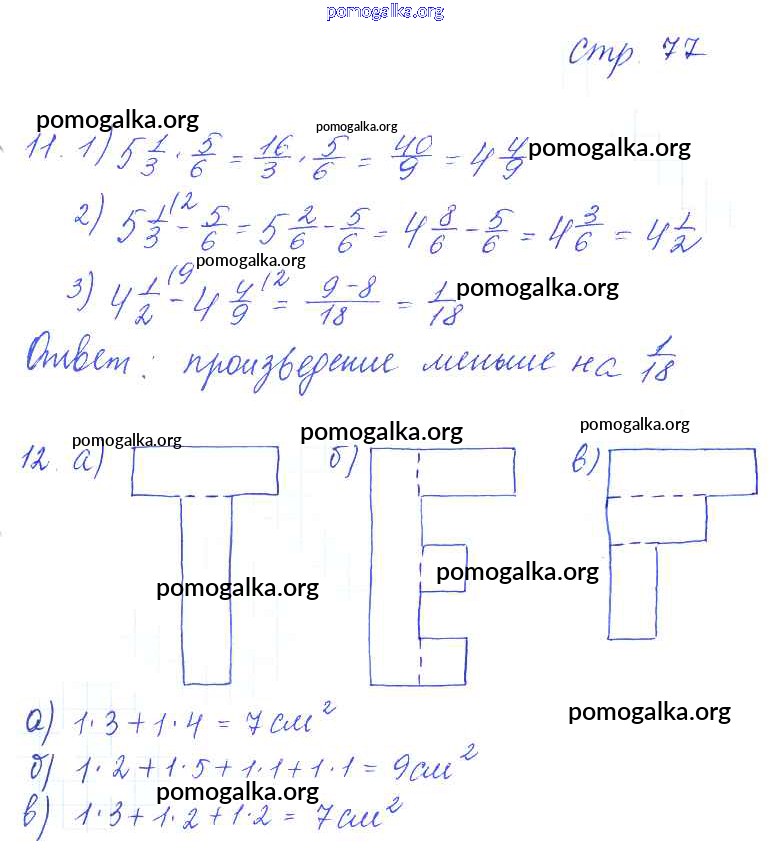 pomogalka.org
стр. 77
pomogalka.org pomogalka.org
11. 1) 5 1/3 · 5/6 = 16/3 · 5/6 = 40/9 = 4 4/9 pomogalka.org
2) 5 1/3 (2 - 5/6 = 5 2/6 - 5/6 = 4 8/6 - 5/6 = 4 3/6 = 4 1/2
pomogalka.org
3) 4 1/2 (9 - 4 4/9 (2 = 9-8/18 = 1/18 pomogalka.org
Ответ: произведение меньше на 1/18
pomogalka.org pomogalka.org pomogalka.org
12. а) б) в)
pomogalka.org pomogalka.org
pomogalka.org
а) 1·3+1·4 = 7 см²
б) 1·2+1·5+1·1+1·1 = 9 см²
pomogalka.org
в) 1·3+1·2+1·2 = 7 см²